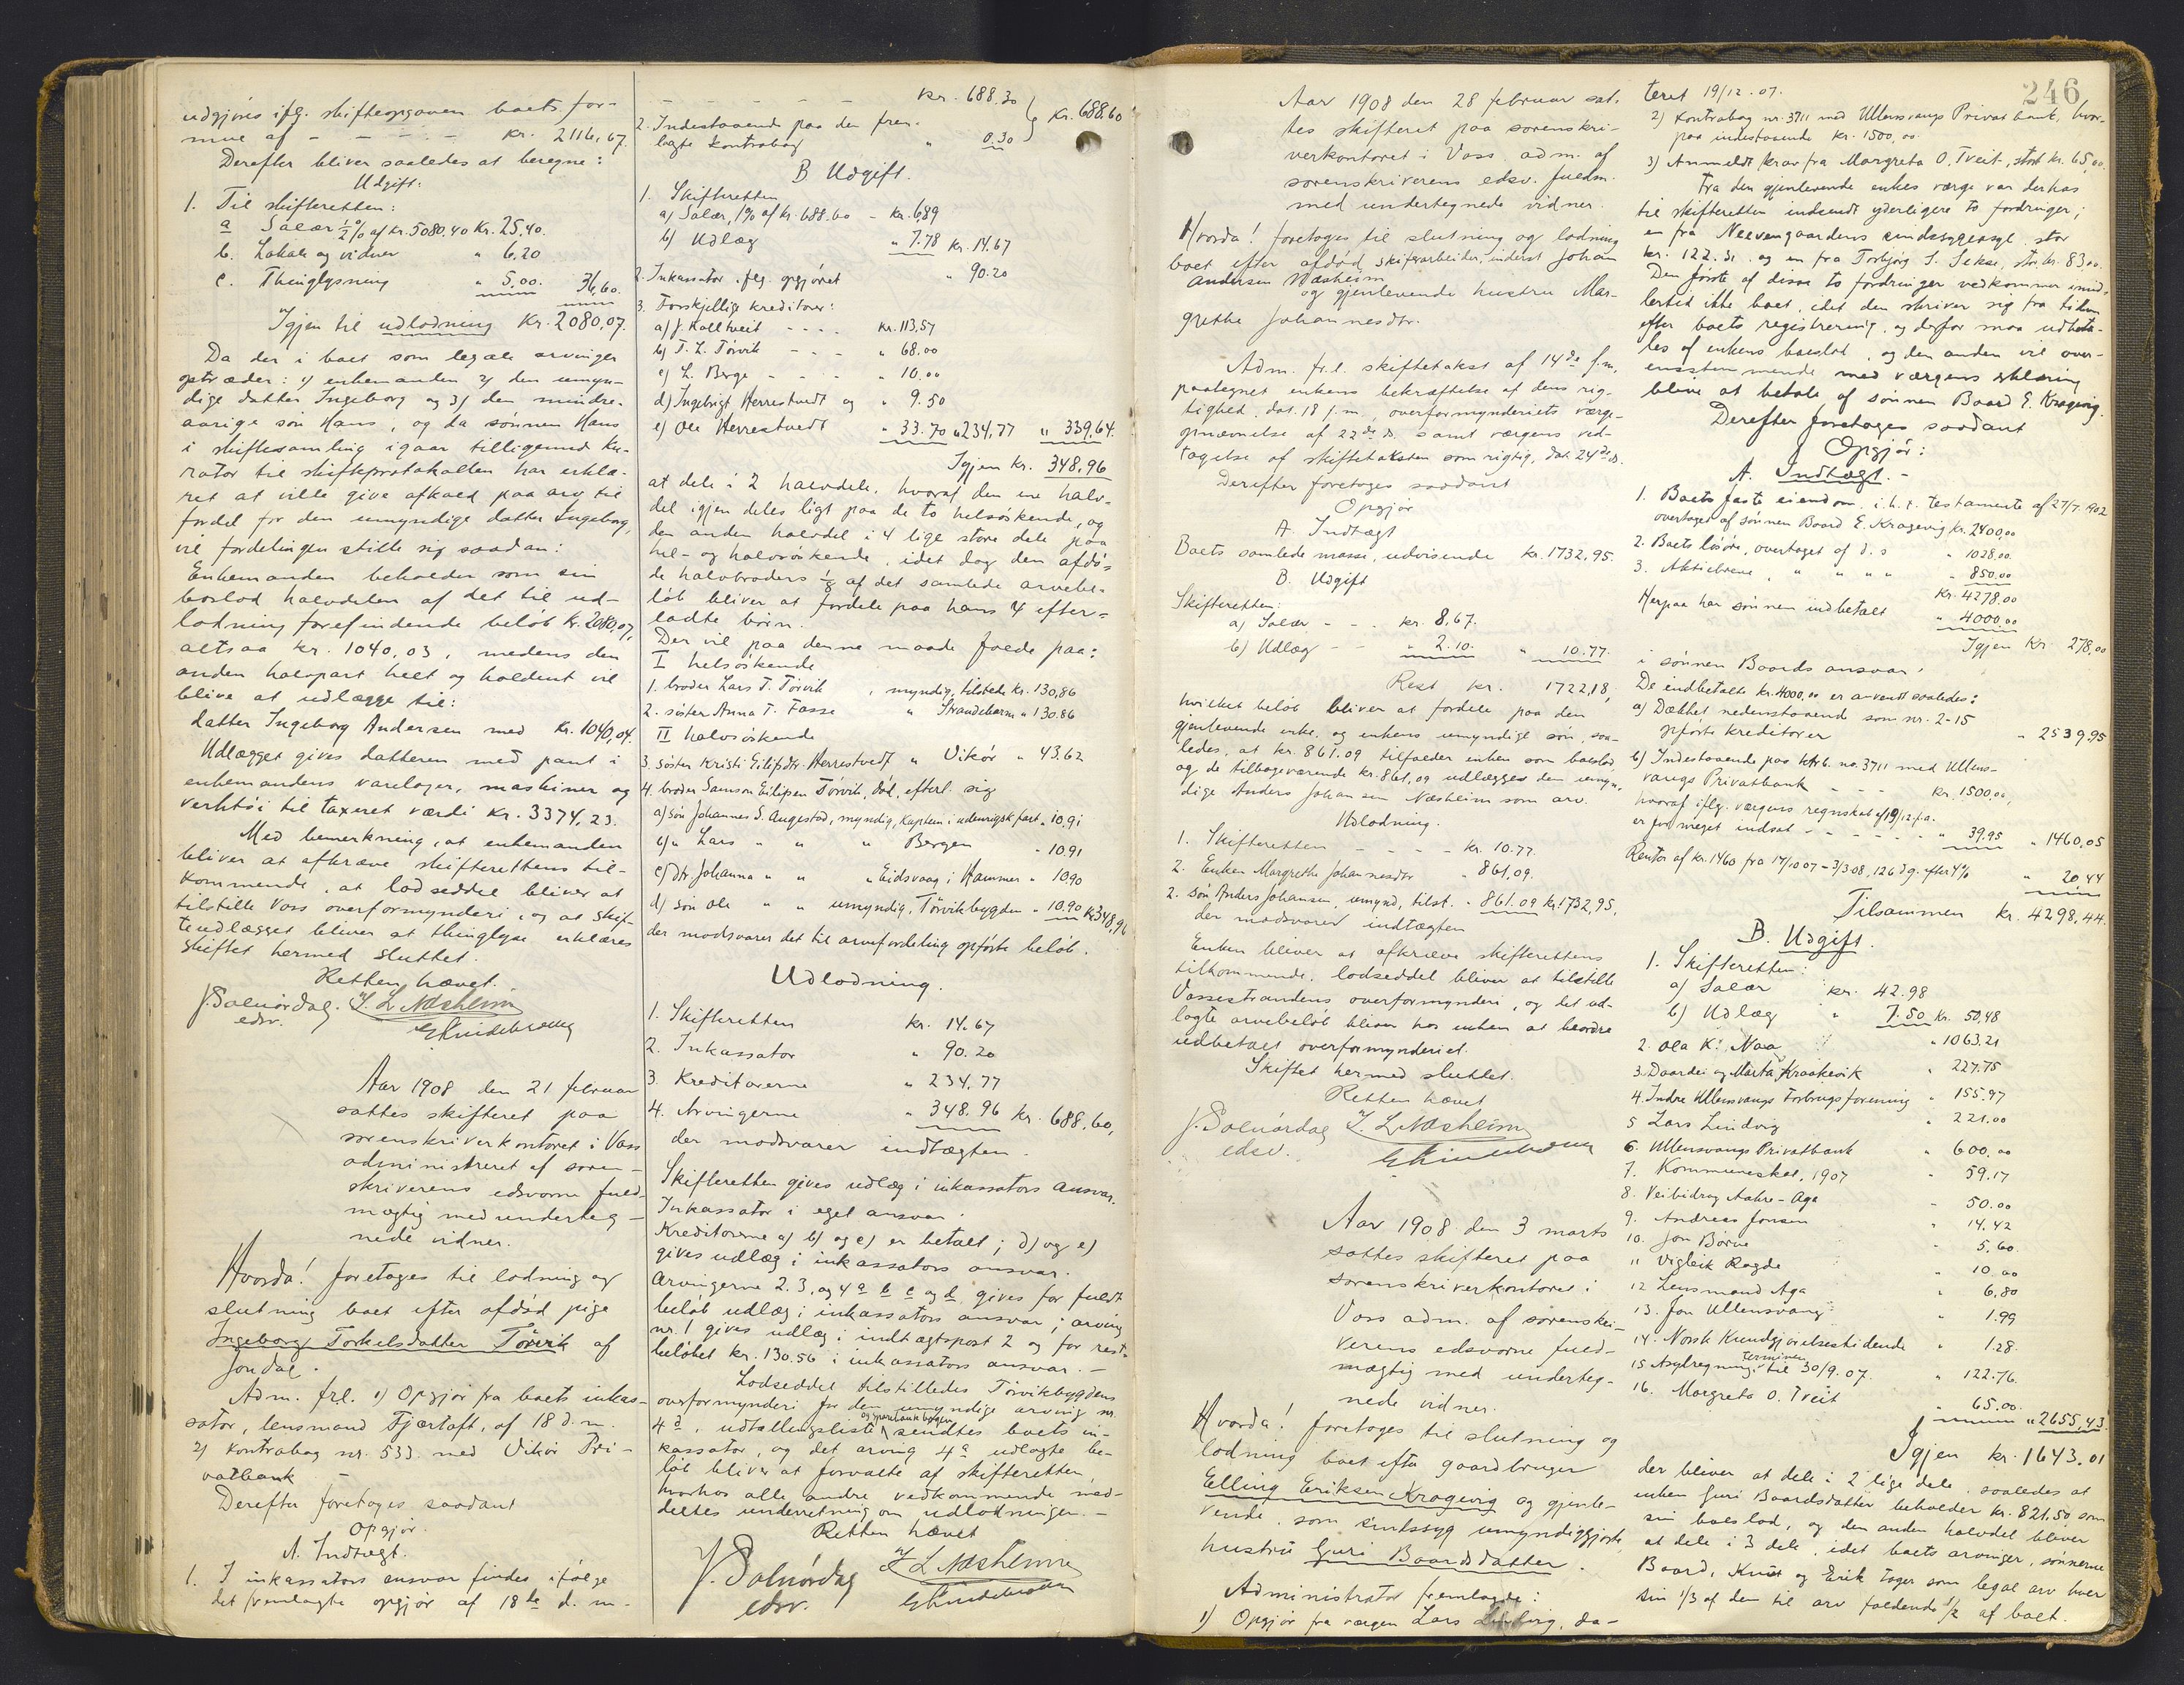 udgjøres iflg. skifteopgaven boets for-
mue af - - - - - kr. 2116,67.
Derefter bliver saaledes at beregne:
Udgift:
1. Til skifteretten:
a Salær ½% af kr. 5080.40 kr. 25.40.
b. Lokale og vidner " 6.20
c. Thinglysning " 5.00. 36,60.
Igjen til udlodning kr. 2080,07.
Da der i boet som legale arvinger
optræder: 1) enkemanden 2) den umyn-
dige datter Ingeborg og 3) den mindre-
aarige søn Hans, og da sønnen Hans
i skiftesamling igaar tilligemed ku-
rator til skifteprotokollen har erklæ-
ret at ville give afkald paa arv til
fordel for den umyndige datter Ingeborg,
vil fordelingen stille sig saadan:
Enkemanden beholder som sin
boslod halvdelen af det til ud-
lodning forefindende beløb kr. 2080,07,
altsaa kr. 1040,03, medens den
anden halvpart helt og holdent vil
blive at udlægge til:
datter Ingeborg Andersen med kr. 1040,04.
Udlægget gives datteren med pant i
enkemandens varelager, maskiner og
verktøi til taxeret værdi kr. 3374,23.
Med bemerkning, at enkemanden
bliver at afkræve skifterettens til-
kommende, at lodseddel bliver at
tilstille Voss overformynderi, og at skif-
teudlægget bliver at thinglyse erklæres
skiftet hermed sluttet.
Retten hævet.
J. Solnørdal. I. L. Næsheim
edsv.
Aar 1908 den 21 februar
sattes skifteret paa
sorenskriverkontoret i Voss
administreret af soren-
skriverens edsvorne fuld-
mægtig med underteg-
nede vidner.
Hvorda! foretoges til lodning og
slutning boet efter afdød pige
Ingeborg Torkelsdatter Tørvik af
Jondal.
Adm. frl. 1) Opgjør fra boets inkas-
sator, lensmand Fjærtoft, af 18 d. m.
2) Kontrabog nr. 533 med Vikør Pri-
vatbank -
Derefter foretoges saadant
Opgjør.
A. Indtægt.
1. I inkassators ansvar findes ifølge
det fremlagte opgjør af 18de d. m.
- - - - - - kr. 688.30
2. Indestaaende paa den frem-
lagte kontrabog " 0.30 } kr. 688.60
B Udgift.
1. Skifteretten
a) Salær, 1% af kr. 688.60 - kr. 6.89
b) Udlæg " 7.78 kr. 14.67
2. Inkassator iflg. opgjøret " 90.20
3. Forskjellige kreditorer:
a) J. Kolltveit - - - - kr. 113,57
b) T. L. Tørvik - - - " 68.00
c) L. Berge - - - - " 10.00
d) Ingebrigt Herrestvedt og " 9.50
e) Ole Herrestvedt " 33.70 " 234,77 " 339,64.
Igjen kr. 348,96
at dele i 2 halvdele, hvoraf den ene halv-
del igjen deles ligt paa de to helsøskende, og
den anden halvdel i 4 lige store dele paa
hel- og halvsøskende, idet dog den afdø-
de halvbroders ⅛ af det samlede arvebe-
løb bliver at fordele paa hans 4 efter-
ladte børn.
Der vil paa denne maade falde paa:
I helsøskende
1. broder Lars T. Tørvik, myndig, tilstede kr. 130,86
2. søster Anna T. Fosse " Strandebarm " 130.86
II halvsøskende
3 søster Kristi Eilifsdtr. Herrestvedt " Vikør " 43.62
4. broder Samson Eilifsen Tørvik, død, efterl. sig
a) søn Johannes S. Augestad, myndig, kaptein i udenrigsk fart " 10.91
b) " Lars " " " Bergen " 10.91
c) dtr. Johanna " " " Eidsvaag i Hammer " 10.90
d) søn Ole " " umyndig, Tørvikbygden " 10.90 kr. 348,96
der modsvarer det til arvefordeling opførte beløb.
Udlodning.
1. Skifteretten kr. 14.67
2. Inkassator " 90.20
3. Kreditorerne " 234.77
4. Arvingerne " 348.96 kr. 688,60,
der modsvarer indtægten.
Skifteretten gives udlæg i inkassators ansvar.
Inkassator i eget ansvar.
Kreditorerne a) b) og c) er betalt; d) og e)
gives udlæg i inkassators ansvar.
Arvingerne 2. 3. og 4 a b c og d gives for fuldt
beløb udlæg i inkassators ansvar; arving
nr. 1 gives udlæg i indtægtspost 2 og for rest-
beløbet kr. 130.56 i inkassators ansvar. -
Lodseddel tilstilledes Tørvikbygdens
overformynderi for den umyndige arving nr.
4 d, udtællingsliste og sparebankbogen sendtes boets in-
kassator, og det arving 4 a udlagte be-
løb bliver at forvalte af skifteretten,
hvorhos alle andre vedkommende med-
deltes underretning om udlodningen. -
Retten hævet
J. Solnørdal I. L. Næsheim
edsv.
246
Aar 1908 den 28 februar sat-
tes skifteret paa sorenskri-
verkontoret i Voss adm. af
sorenskriverens edsv. fuldm.
med undertegnede vidner.
Hvorda! foretoges til slutning og lodning
boet efter afdød skiferarbeider, inderst Johan
Andersen Næsheim
og gjenlevende hustru Mar-
grethe Johannesdtr.
Adm. fr.l. skiftetakst af 14de f.m.,
paategnet enkens bekræftelse af dens rig-
tighed, dat. 18 f.m., overformynderiets værge-
opnævnelse af 22de ds. samt værgens ved-
tagelse af skiftetaksten som rigtig, dat. 24de ds.
Derefter foretoges saadant
Opgjør
A. Indtægt
Boets samlede masse, udvisende kr. 1732,95.
B. Udgift
Skifteretten:
a) Salær - - - kr. 8.67.
b) Udlæg - - " 2.10. " 10.77.
Rest kr. 1722,18,
hvilket beløb bliver at fordele paa den
gjenlevende enke og enkens umyndige søn, saa-
ledes, at kr. 861.09 tilfalder enken som boeslod
og de tilbageværende kr. 861,09 udlægges den umyn-
dige Anders Johansen Næsheim som arv.
Udlodning.
1. Skifteretten - - - - kr. 10.77.
2. Enken Margrethe Johannesdtr " 861,09.
2. Søn Anders Johansen, umynd, tilst. " 861.09 kr. 1732,95,
der modsvarer indtægten
Enken bliver at afkræve skifterettens
tilkommende, lodseddel bliver at tilstille
Vossestrandens overformynderi, og det ud-
lagte arvebeløb bliver hos enken at beordre
udbetalt overformynderiet.
Skiftet hermed sluttet.
Retten hævet
J. Solnørdal I. L. Næsheim
edsv.
Aar 1908 den 3 marts
sattes skifteret paa
sorenskriverkontoret i
Voss adm. af sorenskri-
verens edsvorne fuld-
mægtig med underteg-
nede vidner.
Hvorda! foretoges til slutning og
lodning boet efter gaardbruger
Elling Eriksen Kragevig og gjenle-
vende, som sindssyg umyndiggjorte,
hustru Guri Baardsdatter.
Administrator fremlagde:
1) Opgjør fra værgen Lars Lindvig, da-
teret 19/12.07.
2) Kontrabog nr. 3711 med Ullensvangs Privatbank, hvor-
paa indestaaende kr. 1500,00.
3) Anmeldt krav fra Margreta O. Tveit, stort kr. 65,00.
Fra den gjenlevende enkes værge var derhos
til skifteretten indsendt yderligere to fordringer,
en fra Neevengaardens sindssygeasyl stor
kr. 122.31 og en fra Torbjørg S. Sekse, stor kr. 83.00.
Den første af disse to fordringer vedkommer imid-
lertid ikke boet, idet den skriver sig fra tiden
efter boets registrering, og derfor maa udbeta-
les af enkens boeslod, og den anden vil over-
ensstemmende med værgens erklæring
blive at betale af sønnen Baard E. Kragevig.
Derefter foretoges saadant
Opgjør:
A. Indtægt. -
1. Boets faste eiendom i h. t. testamente af 27/7.1902
overtaget af sønnen Baard E. Kragevig kr. 2400,00
2. Boets løsøre, overtaget af d. s " 1028.00.
3. Aktiebreve, " " " " " 850.00
kr. 4278.00
Herpaa har sønnen indbetalt " 4000.00
Igjen kr 278,00
i sønnen Baards ansvar.
De indbetalte kr. 4000,00 er anvendt saaledes:
a) Dækket nedenstaaende som nr. 2-15
opførte kreditorer " 2539,95
b) Indestaaende paa ktrb. no. 3711 med Ullens-
vangs Privatbank - - - kr. 1500,00,
hvoraf iflg. værgens regnskab af 19/12 f.a.
er for meget indsat - - - - - - " 39.95 " 1460,05
Renter af kr. 1460 fra 17/10 07 - 3/3 08, 126 dg. efter 4% " 20.44
Tilsammen kr. 4298,44.
B. Udgift.
1. Skifteretten:
a) Salær kr. 42.98
b) Udlæg " 7.50 kr. 50,48
2. Ola K. Naa " 1063.21
3. Daardei og Märta Kraakevik " 227.75
4. Indre Ullensvangs Forbrugsforening " 155.97
5 Lars Lindvig " 221.00
6. Ullensvangs Privatbank " 600.00
7. Kommuneskat, 1907 " 59.17
8. Veibidrag Aahre - Aga " 50.00
9. Andreas Jonsen " 14.42
10. Jon Børve " 5.60.
11 Vigleik Ragde " 10.00
12 Lensmand Aga " 6.80
13. Jon Ullensvang " 1.99
14. Norsk Kundgjørelsestidende " 1.28.
15 Asylregning, terminen til 30/9.07. " 122.76.
16. Margreta O. Tveit " 65.00. " 2655,43
Igjen kr. 1643.01
der bliver at dele i 2 lige dele, saaledes at
enken Guri Baardsdatter beholder kr. 821,50 som
sin boeslod, og den anden halvdel bliver
at dele i 3 dele, idet boets arvinger, sønnerne
Baard, Knut og Erik tager som legal arv hver
sin 1/3 af den til arv faldende ½ af boet.